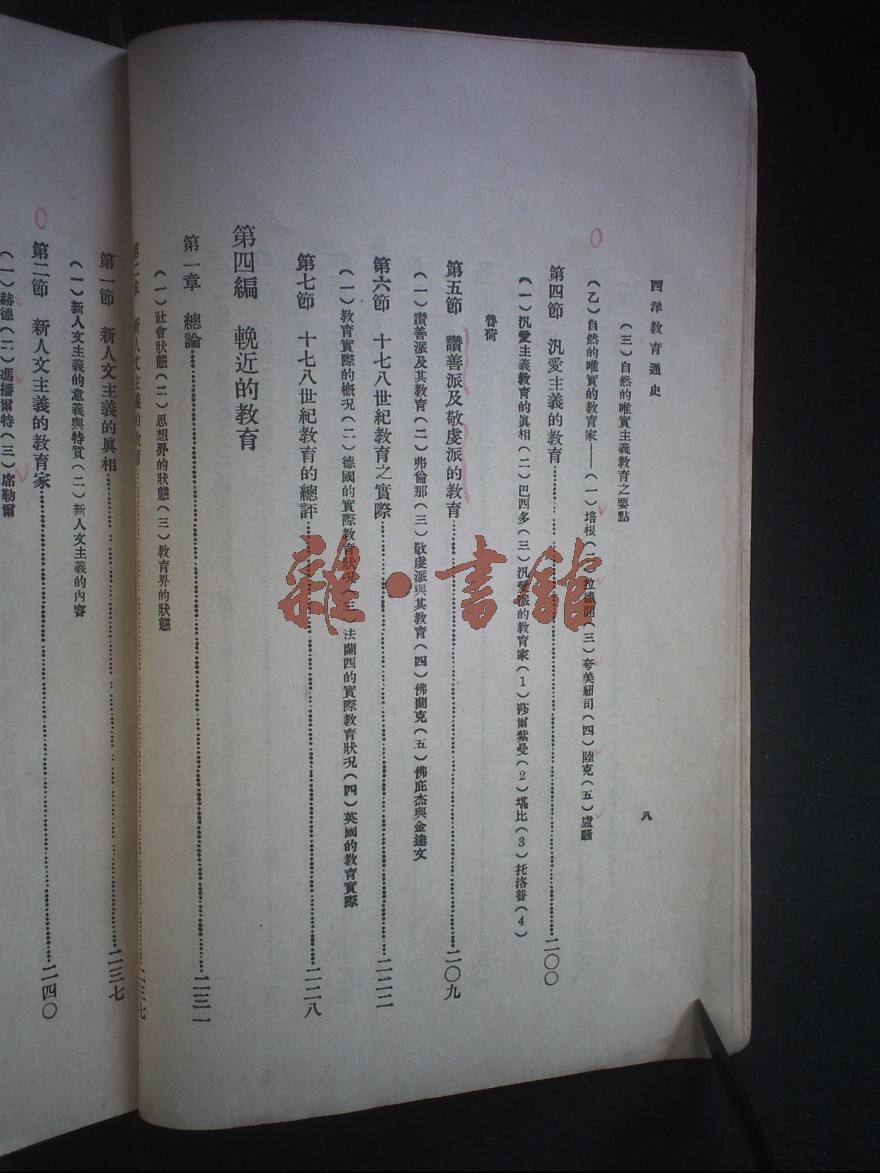 西洋教育通史
八
(三)自然的唯實主義教育之要點
(乙)自然的唯實的教育家——(一)培根(二)拉 (三)夸美紐司(四)陸克(五)盧騷
第四節 汎愛主義的教育 二〇〇
(一)汎愛主義教育的眞相(二)巴西多(三)汎愛派的教育家(1)莎爾紫曼(2)堪比(3)托洛普(4)
魯荷
第五節 讚善派及敬虔派的教育 二〇九
(一)讚善派及其教育(二)弗倫那(三)敬虔派與其教育(四)佛蘭克(五)佛庇杰與金達文
第六節 十七八世紀教育之實際 二二二
(一)教育實際的概況(二)德國的實際教育狀況(三)法蘭西的實際教育狀況(四)英國的教育實際
第七節 十七八世紀教育的總評 二二八
第四編 輓近的教育
第一章 總論 二三一
(一)社會狀態(二)思想界的狀態(三)教育界的狀態
第二章 新人文主義的教育 二三七
第一節 新人文主義的眞相 二三七
(一)新人文主義的意義與特質(二)新人文主義的內容
第二節 新人文主義的教育家 二四〇
(一)赫德(二)馮播爾特(三)席勒爾
雜·書館